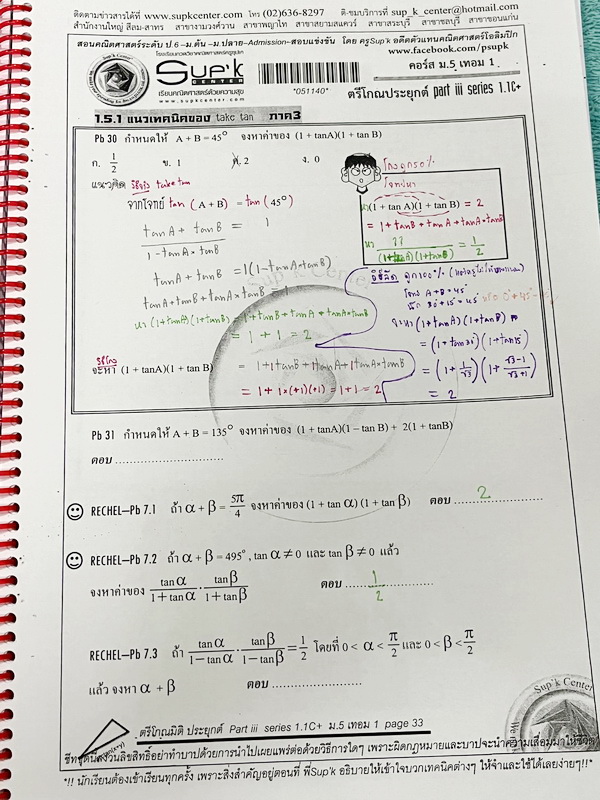 ติดตามข่าวสารได้ที่ www.supkcenter.com โทร (02)636-8297 ติ-ชมบริการที่ sup_k_center@hotmail.com
สำนักงานใหญ่ สีลม-สาทร สาขางามวงศ์วาน สาขาพญาไท สาขาสยามสแควร์ สาขาสระบุรี สาขาชลบุรี สาขาขอนแก่น
สอนคณิตศาสตร์ระดับ ป.6 –ม.ต้น –ม.ปลาย–Admission–สอบแข่งขัน โดย ครูSup'k อดีตตัวแทนคณิตศาสตร์โอลิมปิก
www.facebook.com/psupk
คอร์ส ม.5 เทอม 1
Sup'k
CENTER
เรียนคณิตศาสตร์ด้วยความสุข
www.supkcenter.com
*051140*
ตรีโกณประยุกต์ part iii series 1.1C+
1.5.1 แนวเทคนิคของ take tan ภาค3
Pb 30 กำหนดให้ A + B = 45° จงหาค่าของ (1 + tanA)(1 + tan B)
ก. 1/2 ข. 1 ค. 2 ง. 0
แนวคิด วิธีจริง take tan
จากโจทย์ tan (A + B) = tan (45°)
tanA + tanB / 1 - tanA × tanB = 1
tanA + tanB = 1(1 - tanA × tanB)
tanA + tanB + tanA × tanB = 1
หา (1+tanA)(1+tanB) = 1 + tanB + tanA + tanA × tanB
= 1 + 1 = 2
วิธีโกง
จะหา (1 + tanA)(1 + tan B) = 1 + 1tanB + 1tanA + 1tanA × tanB
= 1 + 1×(+1)(+1) = 1+1 = 2
โกงถูก 50%
โจทย์หา
หา (1 + tan A)(1 + tan B) = 2
= 1 + tanB + tanA + tanA × tanB
หา ??
/ (1+tanA)(1+tanB) = 1/2
วิธีลัด ถูก 100%
โจทย์ A + B = 45°
นึก 30° + 15° = 45°
จะหา (1 + tanA)(1 + tanB)
= (1 + tan 30°)(1 + tan 15°)
= (1 + 1/√3)(1 + √3-1/√3+1)
= 2
Pb 31 กำหนดให้ A + B = 135° จงหาค่าของ (1 + tanA)(1 – tan B) + 2(1 + tanB)
ตอบ ............................
RECHEL–Pb 7.1 ถ้า α + β = 5π/4 จงหาค่าของ (1 + tan α) (1 + tan β) ตอบ 2
RECHEL–Pb 7.2 ถ้า α + β = 495°, tan α ≠ 0 และ tan β ≠ 0 แล้ว
จงหาค่าของ tan α/1 + tan α · tan β/1 + tan β ตอบ 1/2
RECHEL–Pb 7.3 ถ้า tan α/1 – tan α · tan β/1 – tan β = 1/2 โดยที่ 0 < α < π/2 และ 0 < β < π/2
แล้ว จงหา α + β ตอบ ........................
ตรีโกณมิติ ประยุกต์ Part iii series 1.1C+ ม.5 เทอม 1 page 33
*!! นักเรียนต้องเข้าเรียนทุกครั้ง เพราะสิ่งสำคัญอยู่ตอนที่ พี่Sup'k อธิบายให้เข้าใจบวกเทคนิคต่างๆ ให้จำและใช้ได้เลยง่ายๆ!!*